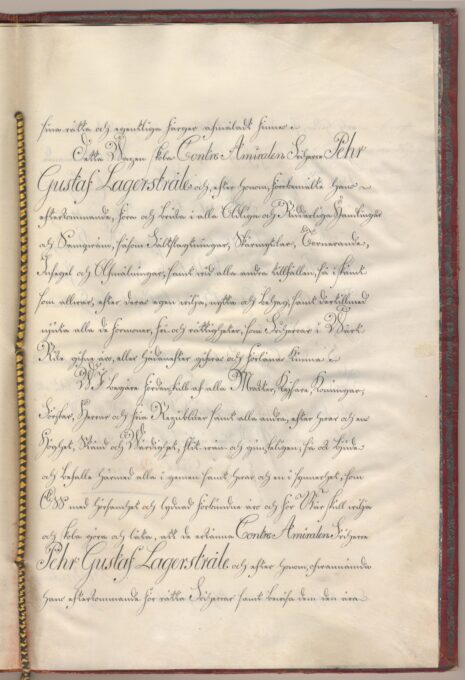 sina rätta och egenteliga färger afmåladt finnes
Detta Wapen skal Contre Amiralen Friherre Pehr
Gustaf Lagerstråle och, efter honom, förbemälte hans
efterkommande, föra och bruka i alla Ährliga och Ridderliga Handlingar
och Sempram, såsom Fältslagtningar, Skärmytslar, Tornerande,
Insegel och Afmålningar, samt vid alla andra tillfällen, så i skämt
som allvar, efter deras egen vilja, nytta och behag, samt dertill med
njuta alla de förmoner, fri- och rättigheter, som Friherrar i Wårt
Rike gifne äro, eller hädanefter gifvas och förlänas kunna
Wi begäre fördenskull af alla Magter, Kejsare, Konungar,
Förstar, Herrar och fria Republiker samt alla andra, efter hvars och ens
Höghet, Stånd och Wärdighet, flit- vän- och gunsteligen, så ock bjude
och befalle härmed alla i gemen samt hvar och en i synnerhet, som
Oss med hörsamhet och lydnad förbundne äro och för Wår skull vilja
och skola göra och låta, att de erkänna Contre Amiralen Friherre
Pehr Gustaf Lagerstråle och efter honom, ofvannämnda
hans efterkommande för rätta Friherrar samt bevisa dem den ära